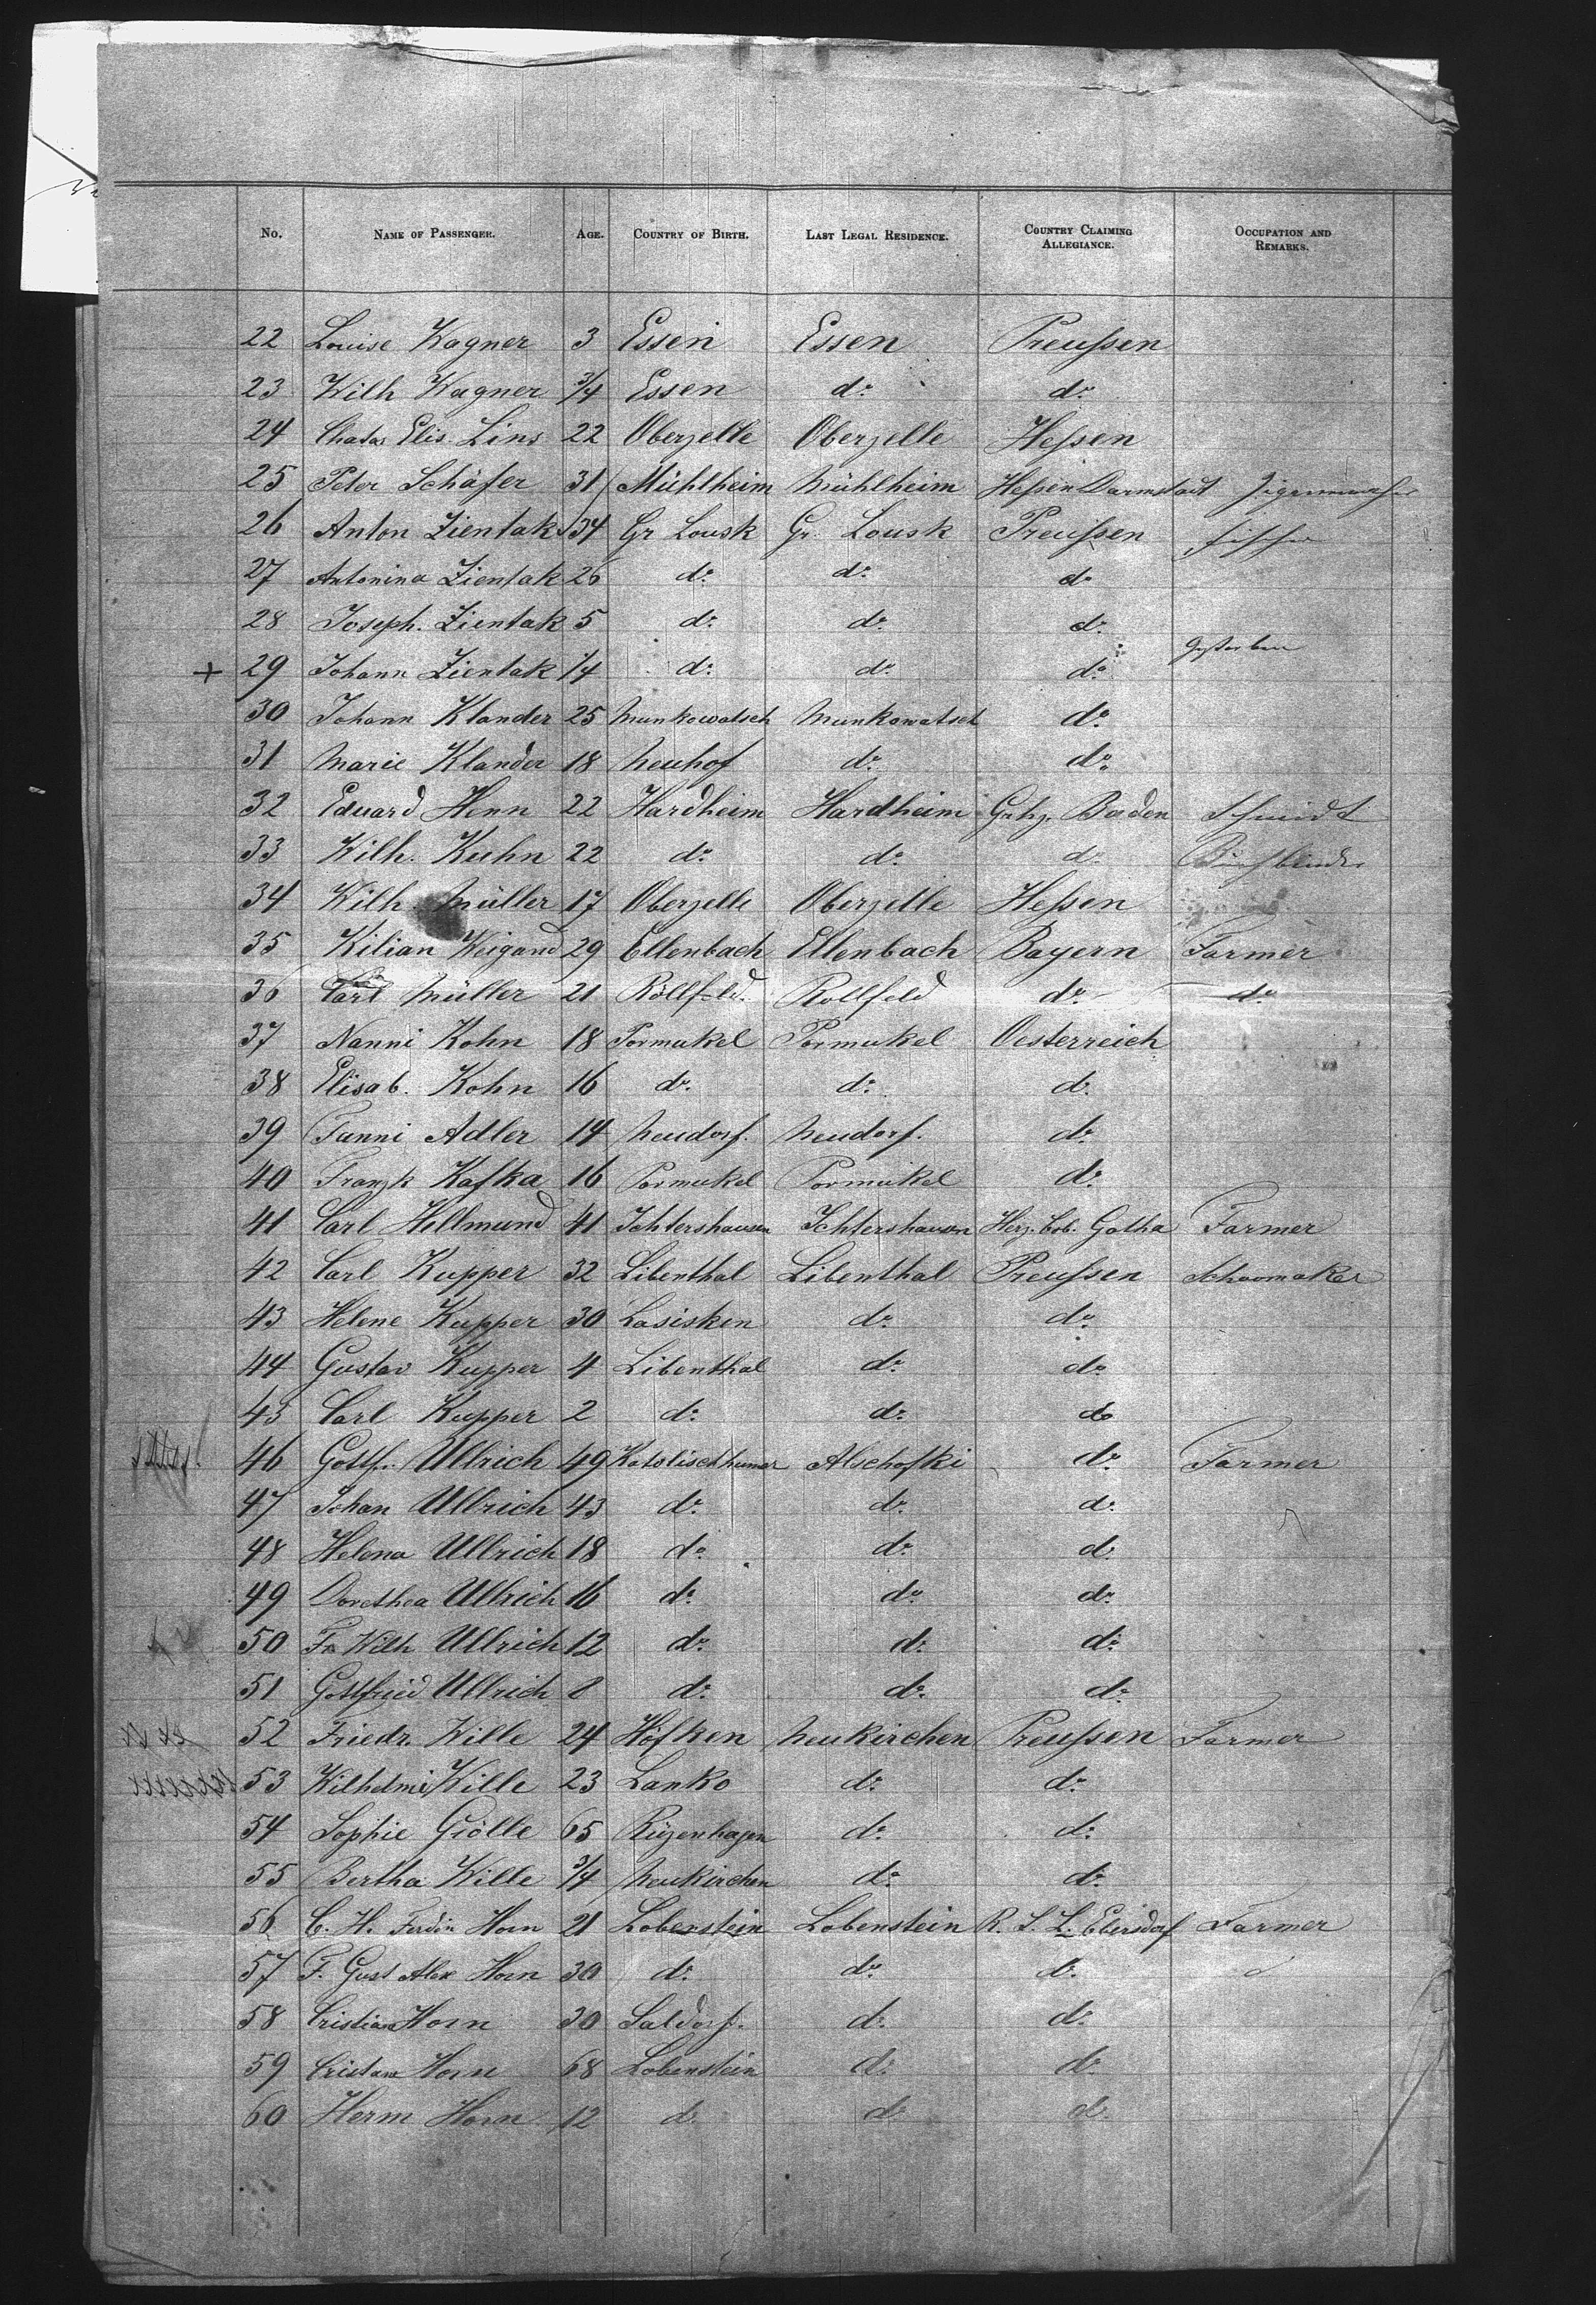 No. NAME OF PASSENGER. AGE. COUNTRY OF BIRTH. LAST LEGAL RESIDENCE. COUNTRY CLAIMING ALLEGIANCE. OCCUPATION AND REMARKS.
22 Louise Wagner 3 Essen Essen Preußen
23 Wilh Wagner 3/4 Essen do do
24 Elis. Lins 22 Oberzelle Oberzelle Heßen
25 Peter Schäfer 31 Mühlheim Mühlheim Heßen Darmstadt
26 Anton Zientak 34 Gr Lousk Gr. Lousk Preußen
27 Antonina Zientak 26 do do do
28 Joseph. Zientak 5 do do do
+ 29 Johann Zientak 1/4 do do do Gestorben
30 Johann Klander 25 Munkowatsch Munkowatsch do
31 Marie Klander 18 Neuhof do do
32 Eduard Henn 22 Hardheim Hardheim Grhz. Baden Schmidt
33 Wilh. Kuhn 22 do do do Buchbinder
34 Wilh. Müller 17 Oberzelle Oberzelle Heßen
35 Kilian Weigand 29 Ellenbach Ellenbach Bayern Farmer
36 Carl Müller 21 Röllfeld. Rollfeld do do
37 Nanni Kohn 18 Pormukel Pormukel Oesterreich
38 Elisab. Kohn 16 do do do
39 Fanni Adler 14 Neudorf. Neudorf. do
40 Kafka 16 Pormukel Pormukel do
41 Carl Hellmund 41 Ichtershausen Ichtershausen Herz. Cob. Gotha Farmer
42 Carl Kupper 32 Libenthal Libenthal Preußen Schoomaker
43 Helene Kupper 30 Lasisken do do
44 Gustav Kupper 4 Libenthal do do
45 Carl Kupper 2 do do do
46 Gottf. Ullrich 49 Alschofki do Farmer
47 Johan Ullrich 43 do do do
48 Helena Ullrich 18 do do do
49 Dorethea Ullrich 16 do do do
50 Fr Wilh Ullrich 12 do do do
51 Gottfried Ullrich 8 do do do
52 Friedr. Wille 24 Höfken Neukirchen Preußen Farmer
53 Wilhelmi Wille 23 Lanko do do
54 Sophie Grölle 65 Rüzenhagen do do
55 Bertha Wille 3/4 Neukirchen do do
56 C. H. Ferdin Horn 21 Lobenstein Lobenstein R. S. L. Ebersdorf Farmer
57 F. Gust Alex Horn 30 do do do
58 Cristian Horn 30 Saldorf. do do
59 Horn 68 Lobenstein do do
60 Herm Horn 12 do do do